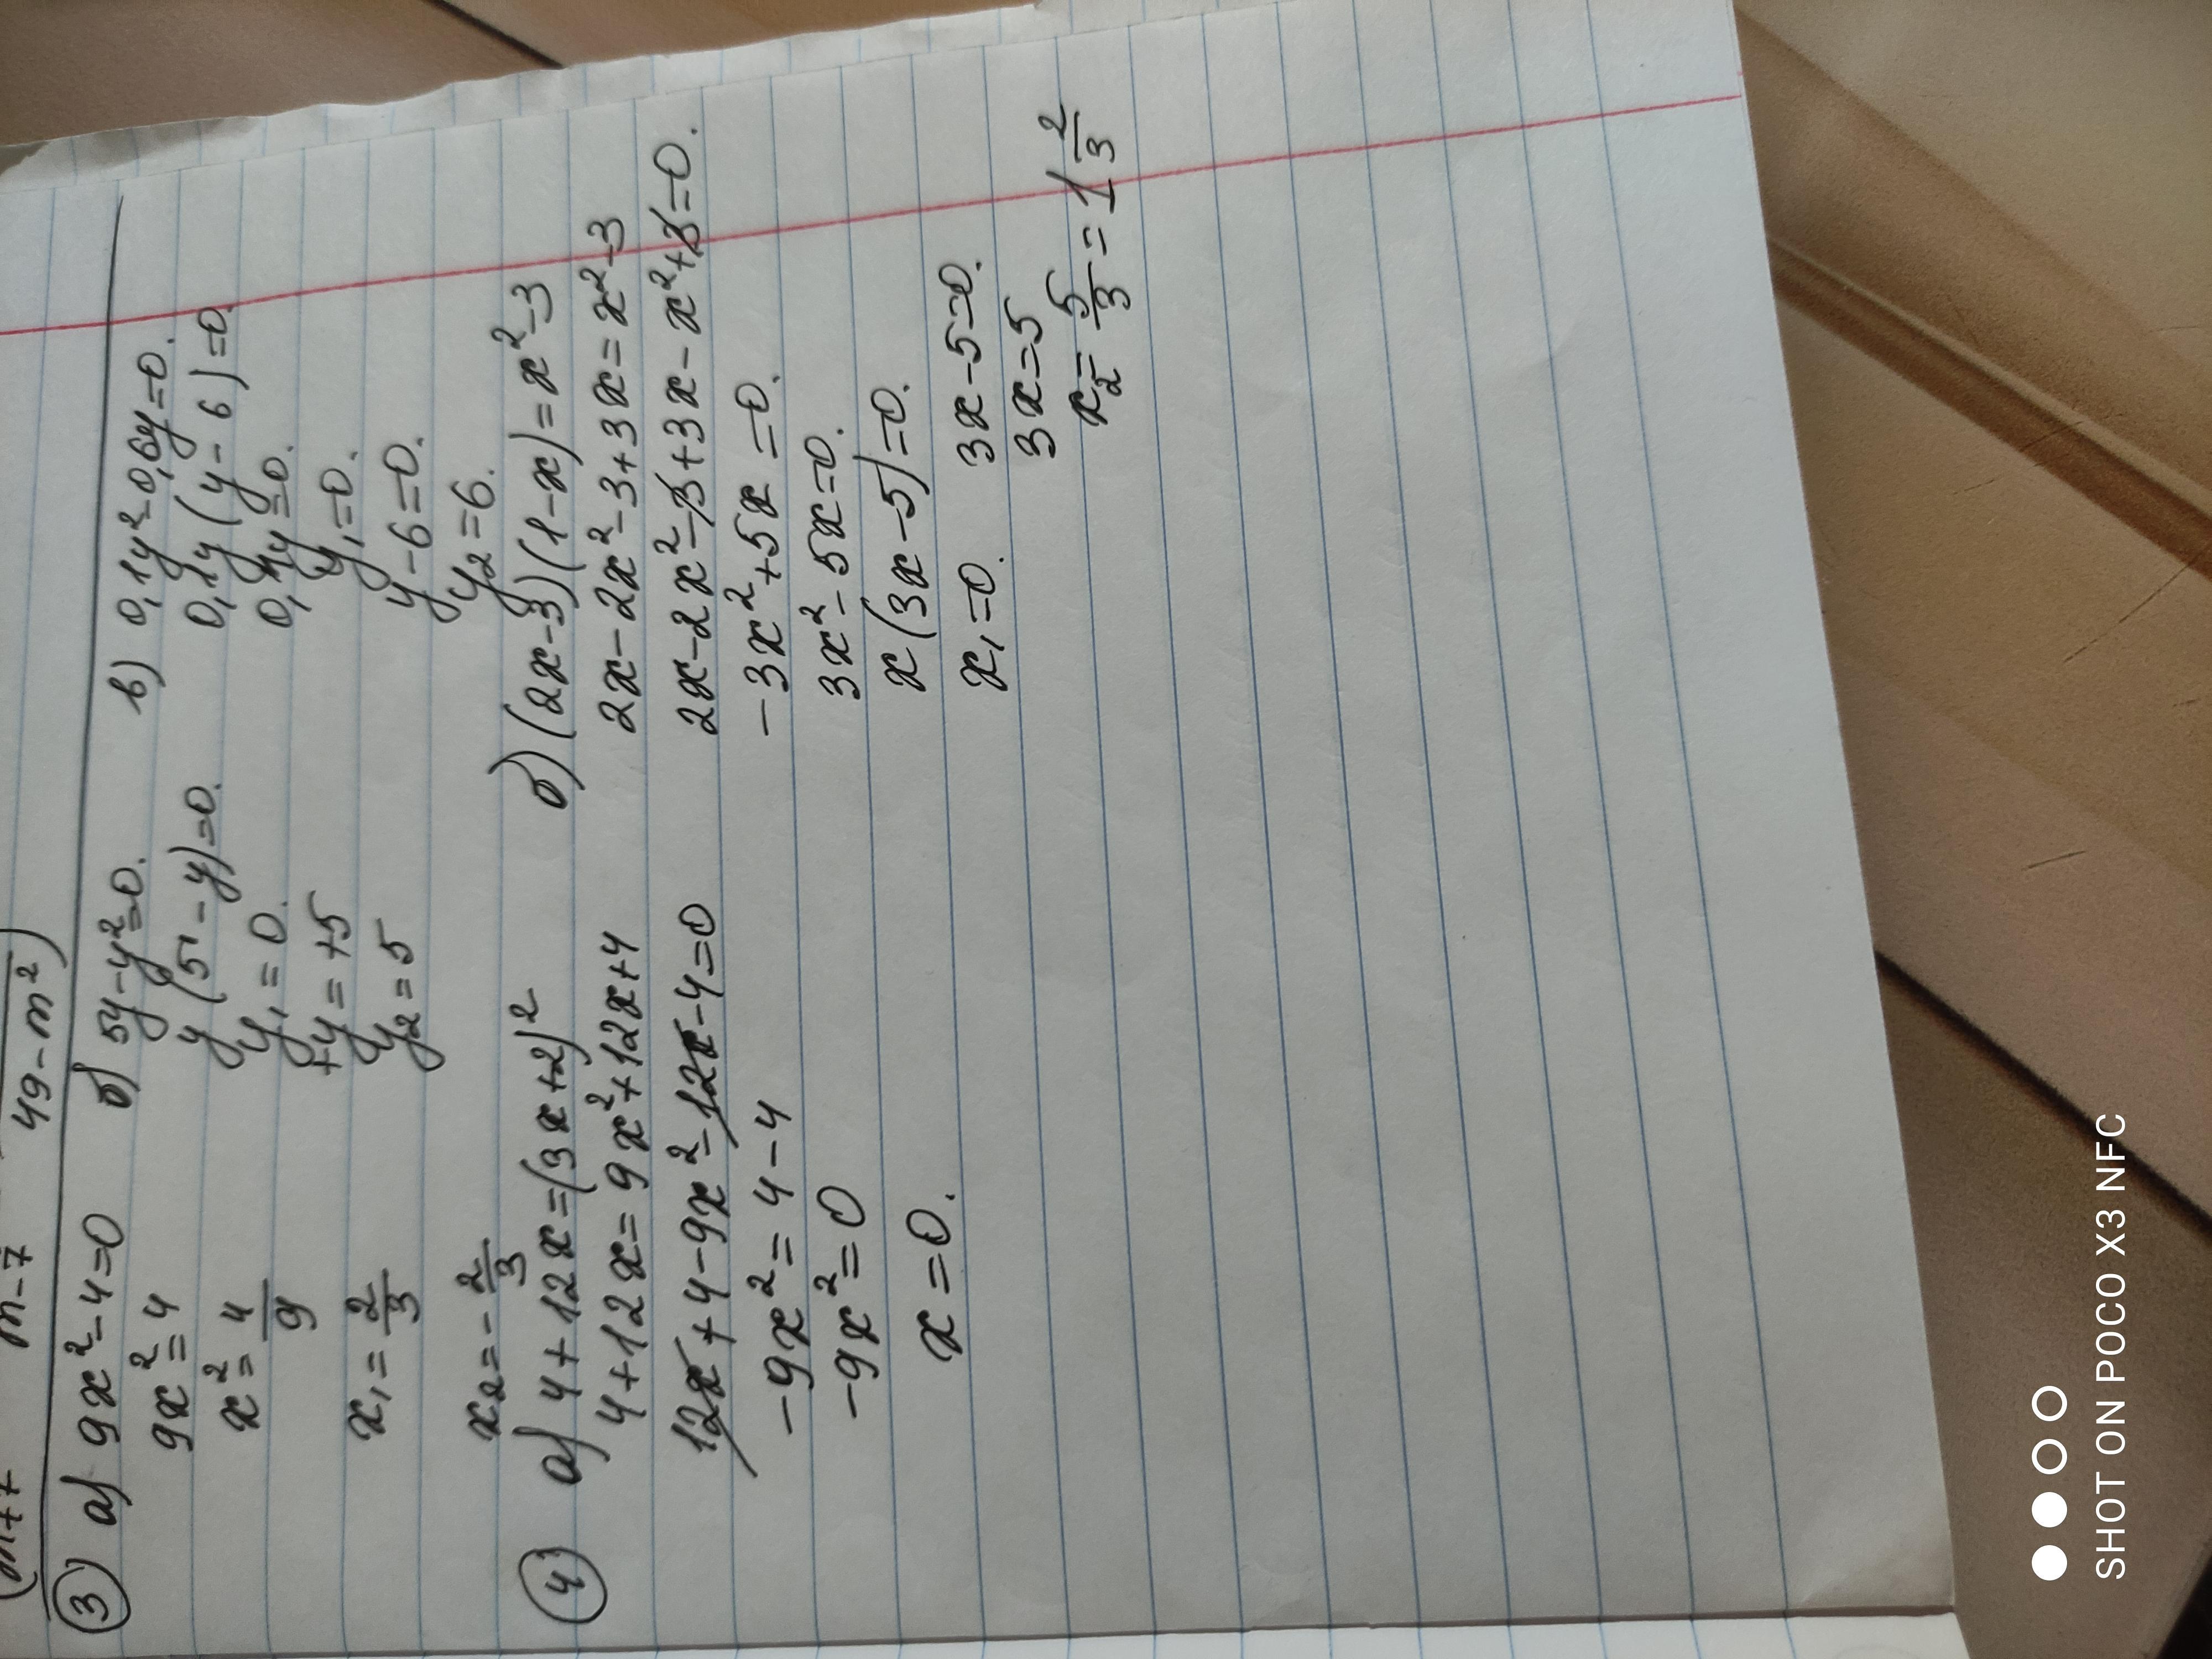 49-m²)
m-7
③ а) 9x²-4=0
9x²=4
x²=4/9
x₁=2/3
x₂=-2/3
б) 5y-y²=0.
y(5-y)=0.
y₁=0.
+y=+5
y₂=5
в) 0,1y²-0,6y=0.
0,1y(y-6)=0.
0,1y=0.
y₁=0.
y-6=0.
y₂=6.
④ а) 4+12x=(3x+2)²
4+12x=9x²+12x+4
12x+4-9x²-12x-4=0
-9x²=4-4
-9x²=0
x=0.
б) (2x-3)(1-x)=x²-3
2x-2x²-3+3x=x²-3
2x-2x²-3+3x-x²+3=0.
-3x²+5x=0.
3x²-5x=0.
x(3x-5)=0.
x₁=0. 3x-5=0.
3x=5
x₂=5/3=1 2/3
SHOT ON POCO X3 NFC